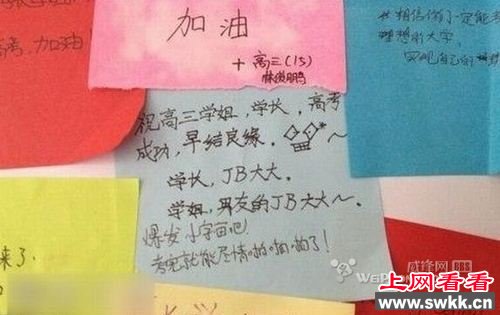 加油
高三(15)
高考,加油!
#相信你了一定能
理想的大学,
祝高三学姐,学长,高考
成功,早结良缘。
学长,JB大大。
学姐,男友的JB大大~。
爆发小宇宙吧!
考完就能尽情啪啪啪了!
来了。
威锋网 BBS
上网看看
www.swkk.cn